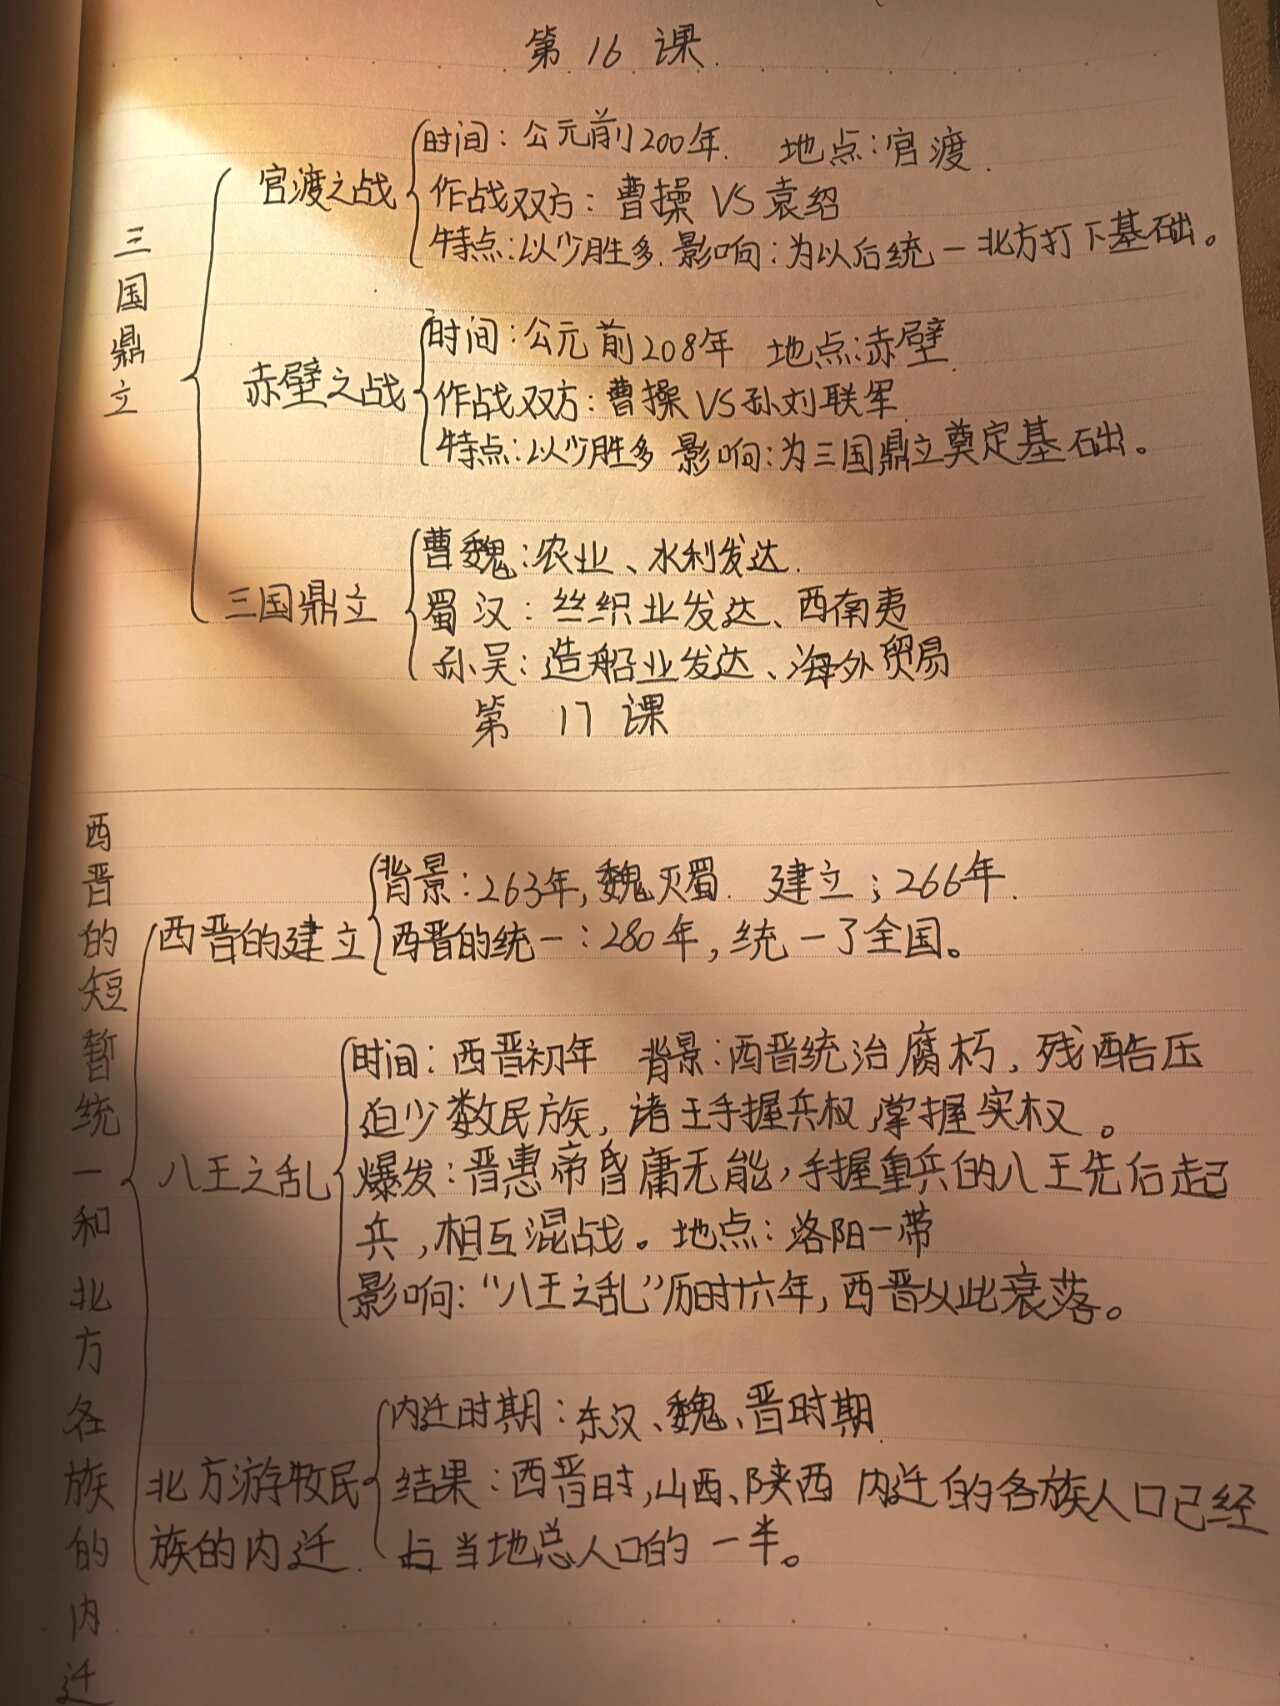 第16课
三国鼎立
官渡之战
时间：公元前200年. 地点：官渡.
作战双方：曹操 VS 袁绍
特点：以少胜多. 影响：为以后统一北方打下基础。
赤壁之战
时间：公元前208年 地点：赤壁.
作战双方：曹操 VS 孙刘联军
特点：以少胜多 影响：为三国鼎立奠定基础。
三国鼎立
曹魏：农业、水利发达.
蜀汉：丝织业发达、西南夷
孙吴：造船业发达、海外贸易
第 17 课
西晋的短暂统一和北方各族的内迁
西晋的建立
背景：263年,魏灭蜀. 建立：266年.
西晋的统一：280年,统一了全国。
八王之乱
时间：西晋初年 背景：西晋统治腐朽,残酷压
迫少数民族,诸王手握兵权,掌握实权。
爆发：晋惠帝昏庸无能,手握重兵的八王先后起
兵,相互混战。地点：洛阳一带
影响：“八王之乱”历时十六年,西晋从此衰落。
北方游牧民
族的内迁.
内迁时期：东汉、魏、晋时期.
结果：西晋时,山西、陕西 内迁的各族人口已经
占当地总人口的一半。